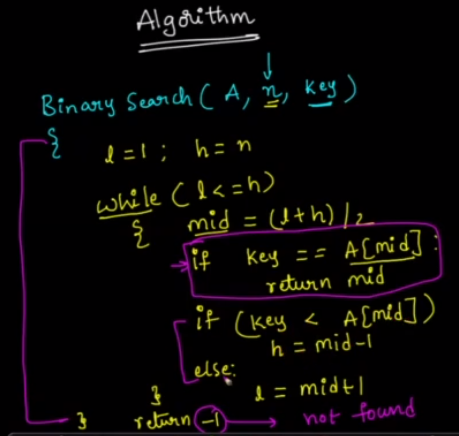 Algorithm
Binary Search ( A, n, key )
{
l = 1 ; h = n
while ( l <= h )
{ mid = (l+h) / 2
if key == A[mid] :
return mid
if (key < A[mid])
h = mid-1
else:
l = mid+1
}
} return -1 → not found